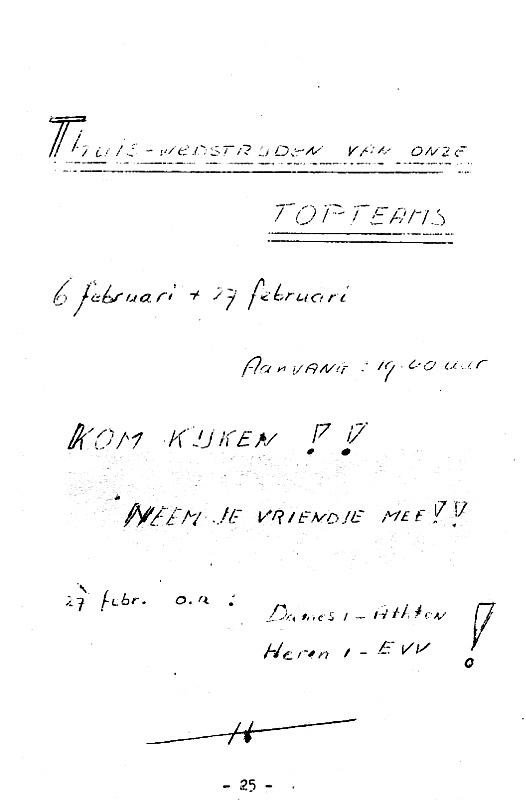 Thuis-wedstrijden van onze
TOP-TEAMS
6 februari + 27 februari
Aanvang : 19.00 uur
KOM KIJKEN !!
NEEM JE VRIENDJE MEE!!
27 febr. o.a :
Dames 1 -
Heren 1 - EVV !
- 25 -